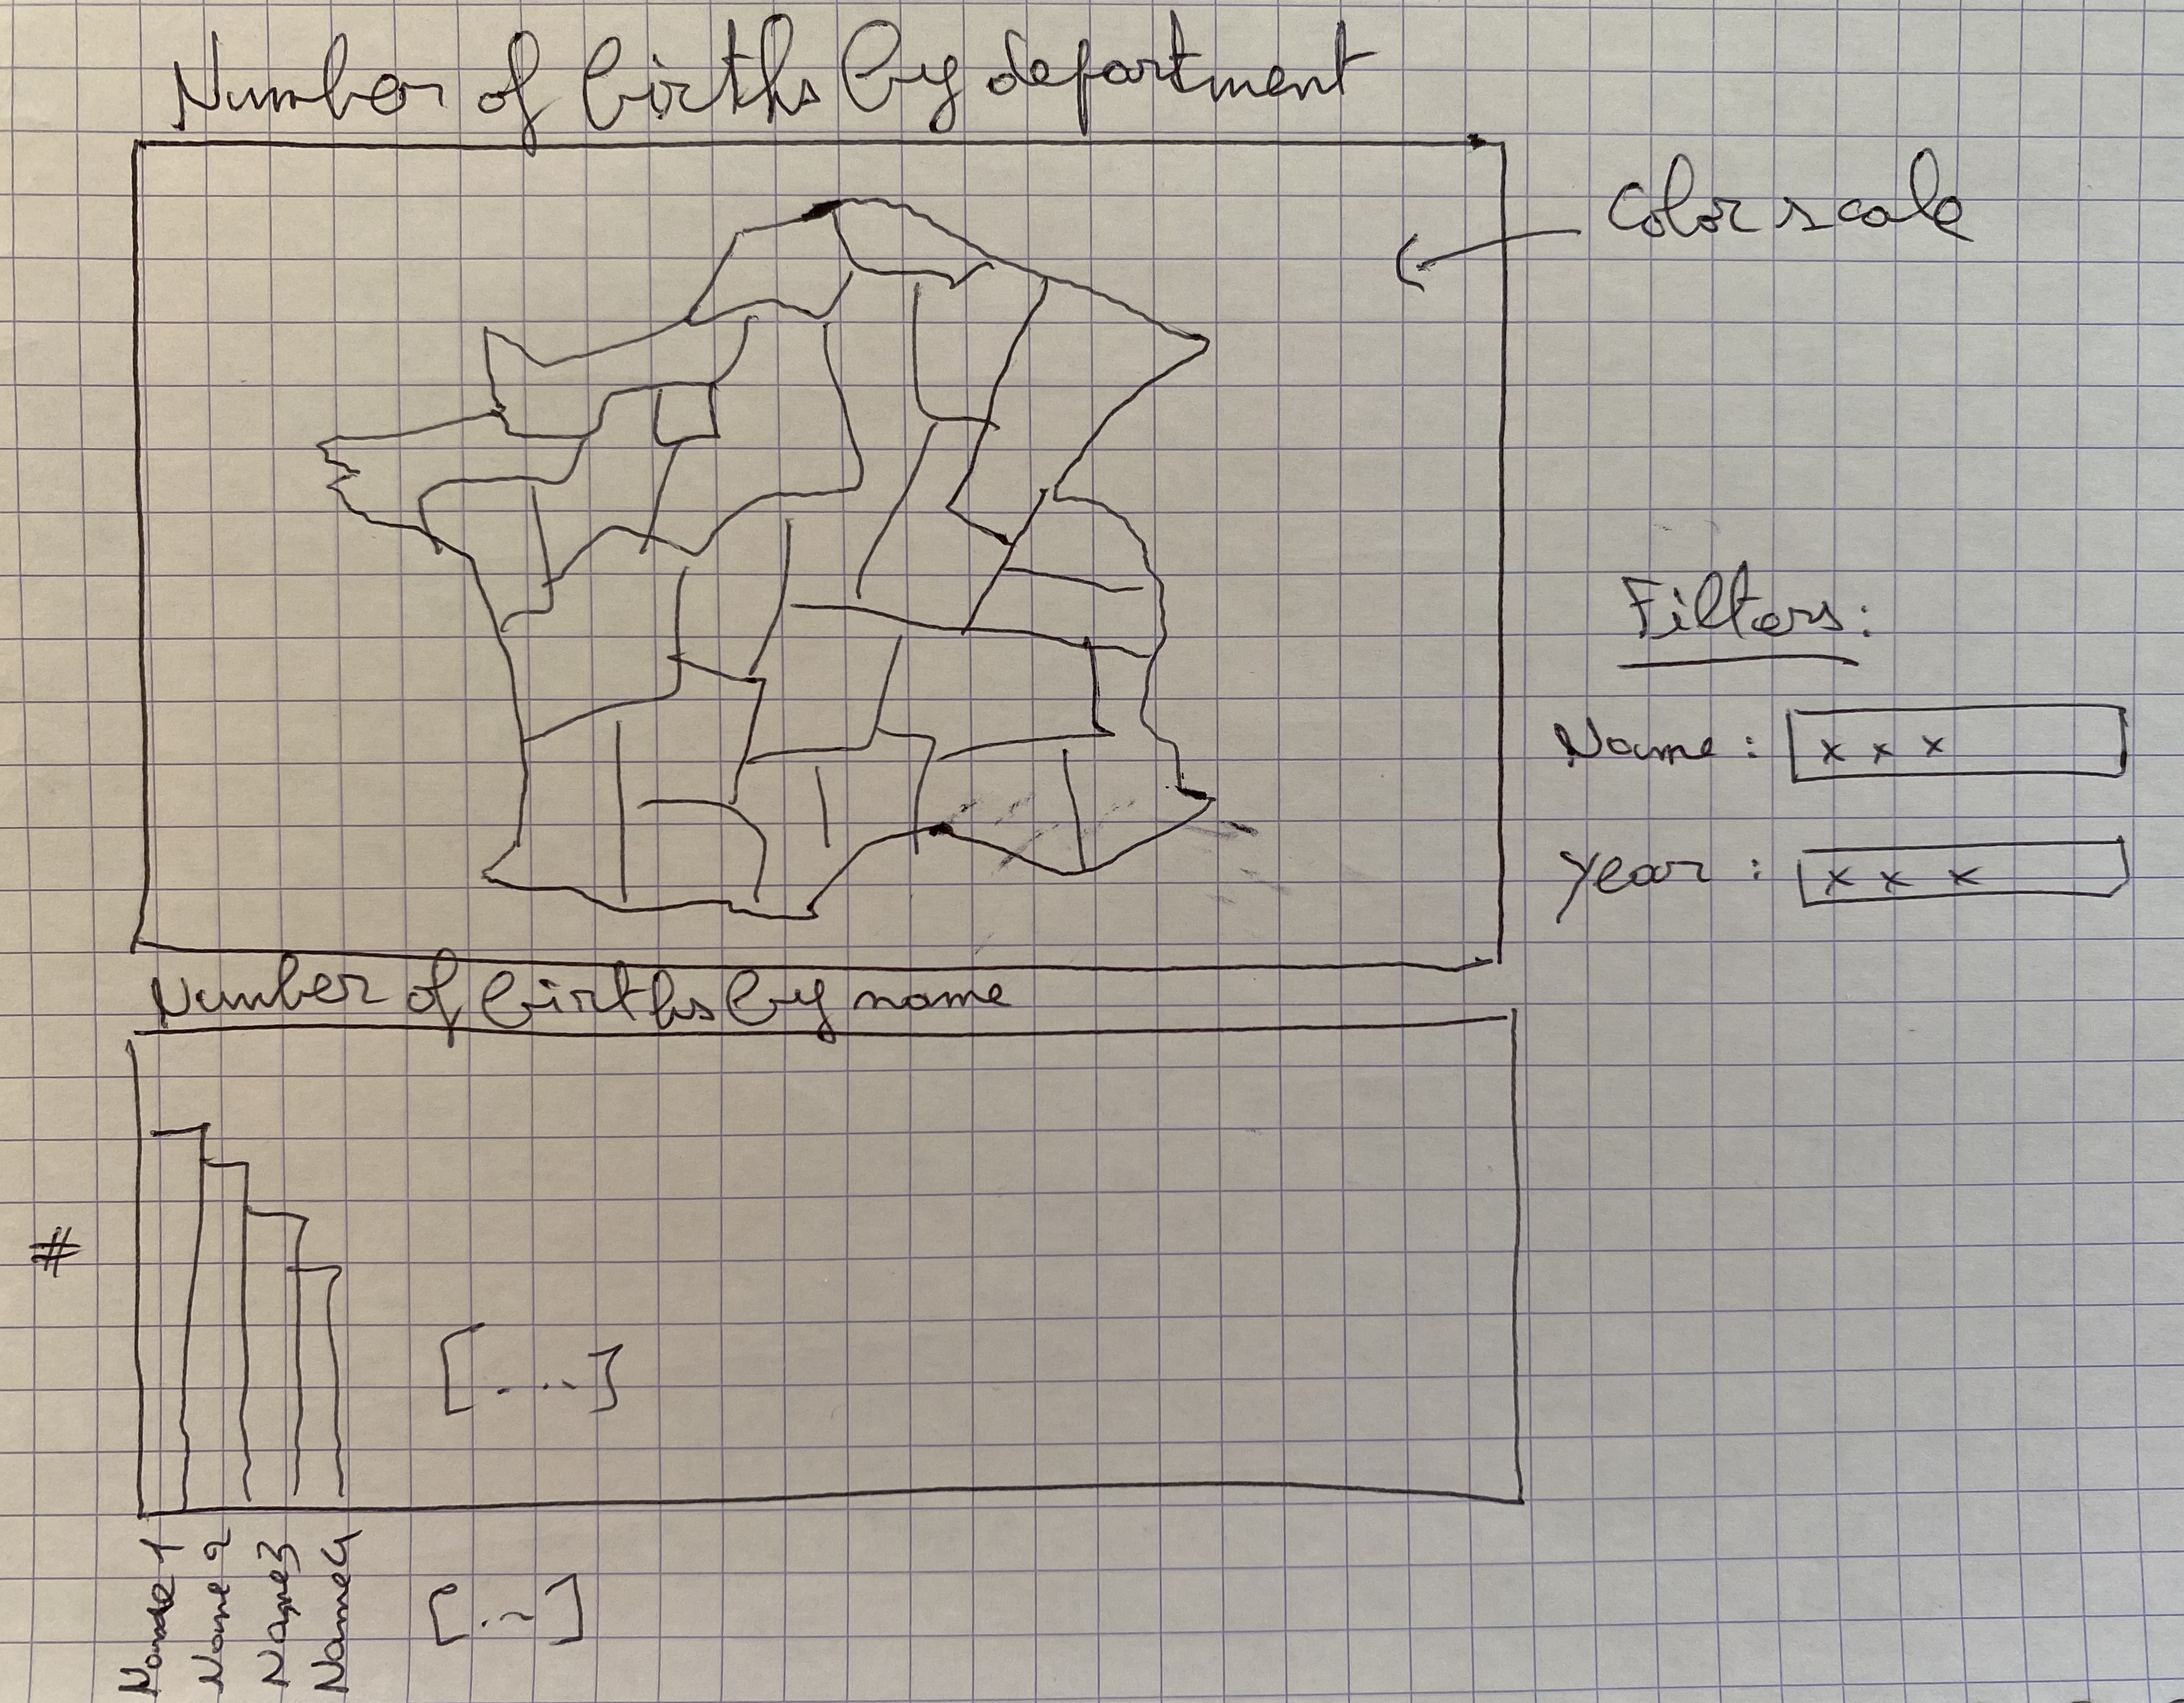 Number of births by department
Color scale
Filters:
Name: x x x
Year: x x x
Number of births by name
#
[...]
Name 1
Name 2
Name3
Name4
[...]